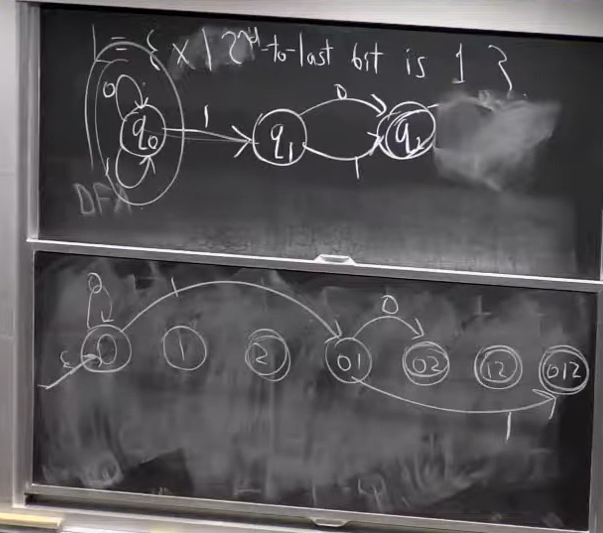 L = { x | 2nd-to-last bit is 1 }
0 1 0
q0 q1 q2
1 1
DFA
0 1 0
ε 0 1 2 01 02 12 012
1